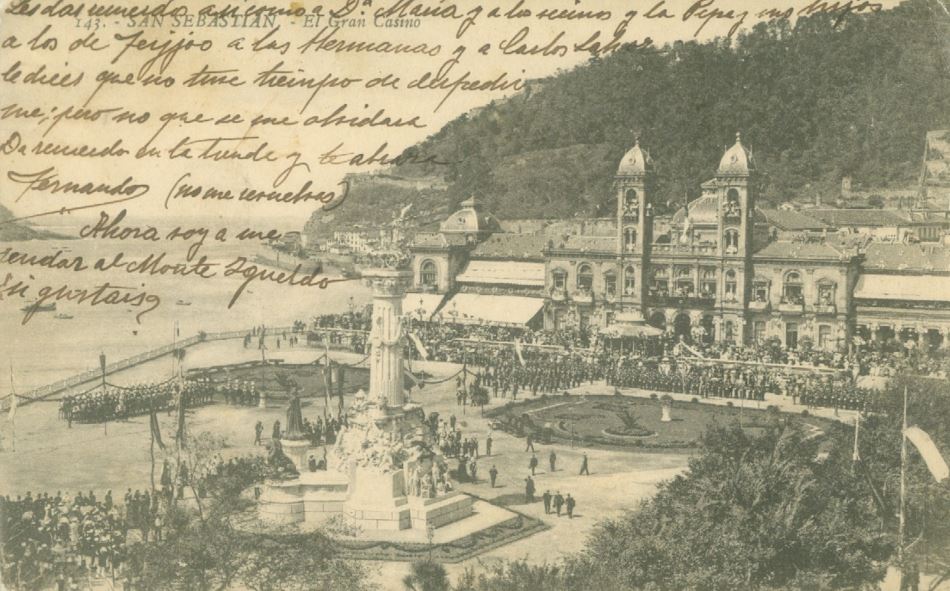 143. - SAN SEBASTIAN, - El Gran Casino
Les das recuerdo asi como a Dª Maria y a los suios y la Pepaz sus hijos
a los de Feijoo a las Hermanas y a Carlos
le dices que no tuve tiempo de despedir
me; pero no que se me olvidara
Da recuerdo en la tienda y te abraza
Fernando (no me escribas)
Ahora soy a me
rendar al Monte Igueldo
Si gustais